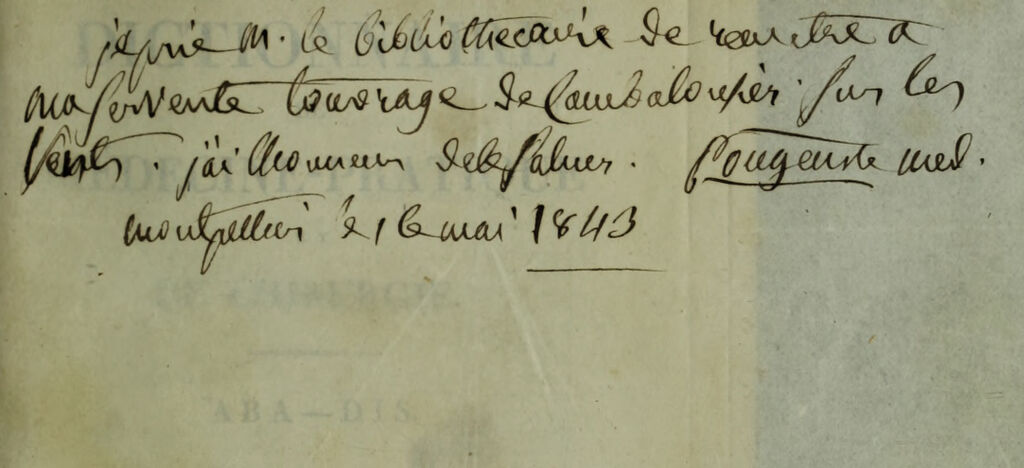 je prie M. le bibliothecaire de remettre a
ma servente l'ouvrage de Combalousier sur les
Vents. j'ai lhonneur dele saluer. Pougenste med.
montpellier le 16 mai 1843
DICTIONNAIRE
MEDECINE PRATIQUE
DE CHIRURGIE
ABA—DIS